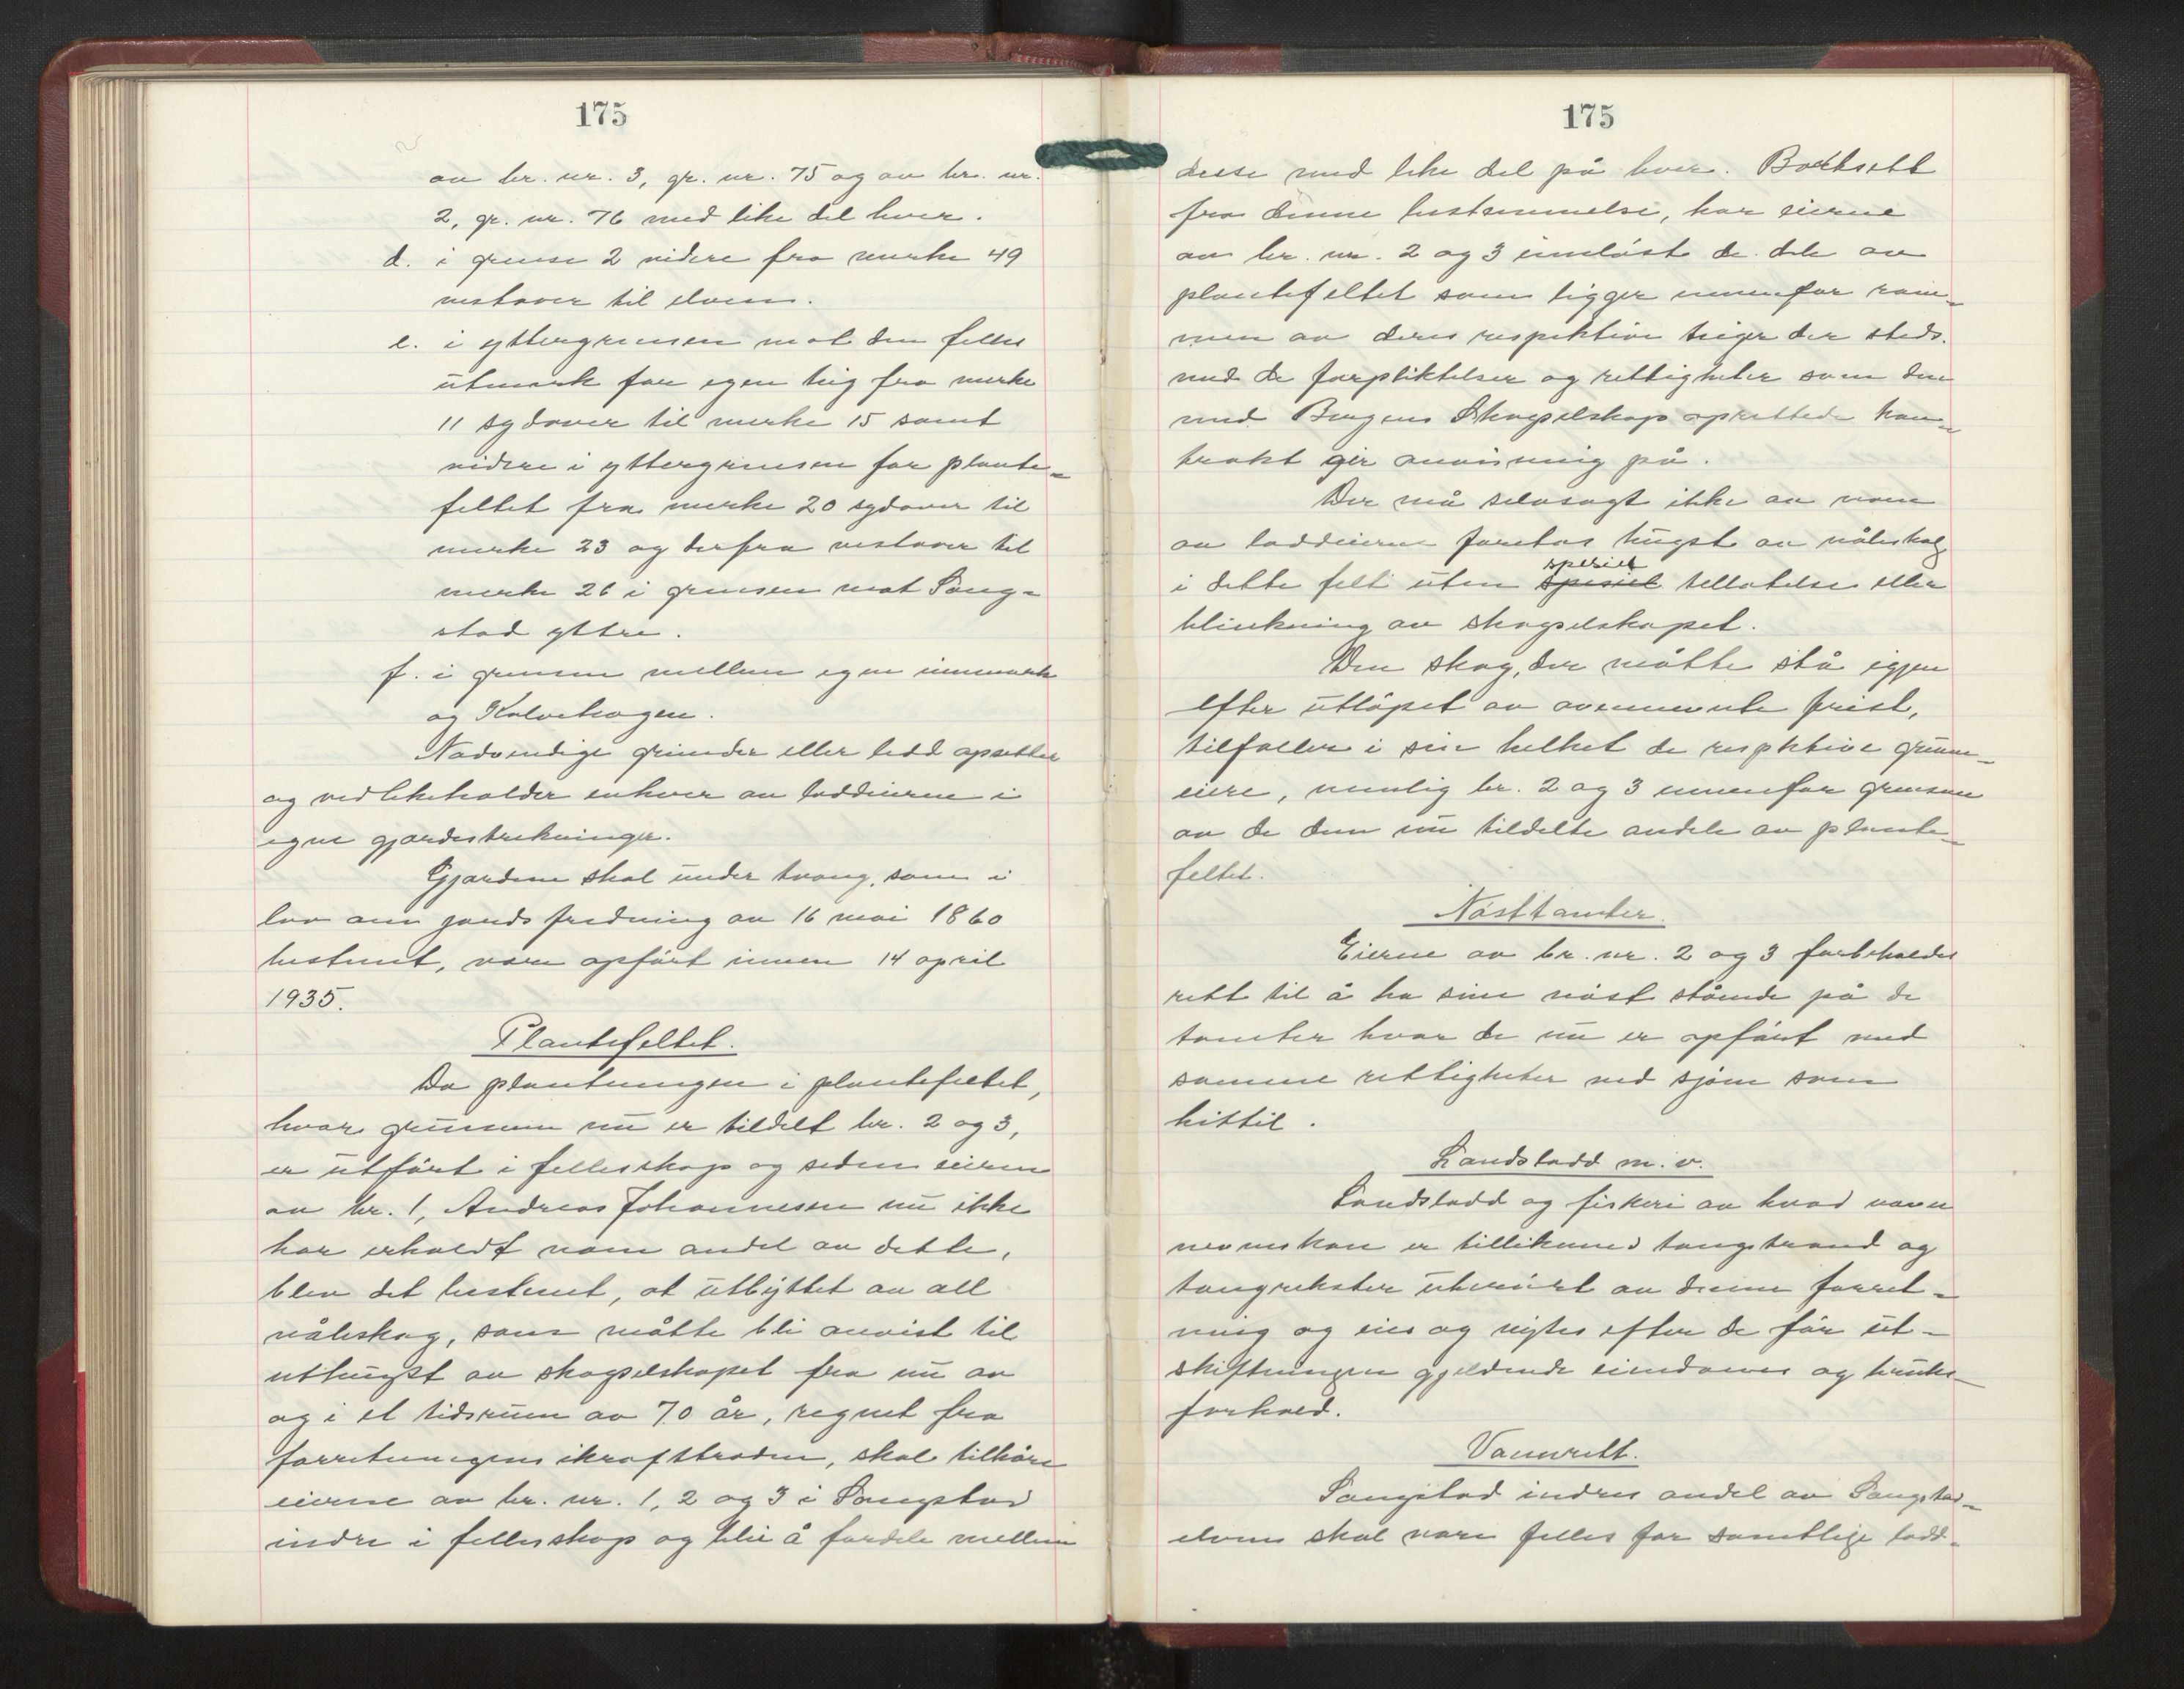 175
av br. nr. 3, gr. nr. 75 og av br. nr.
2, gr. nr. 76 med like del hver.
d. i grense 2 videre fra merke 49
vestover til elven.
e. i yttergrensen mot den felles
utmark for egen teig fra merke
11 sydover til merke 15 samt
videre i yttergrensen for plante-
feltet fra merke 20 sydover til
merke 23 og derfra vestover til
merke 26 i grensen mot Sang-
stad ytre.
f. i grensen mellem egen innmark
og Kalvehagen.
Nødvendige grinder eller ledd opsetter
og vedlikeholder enhver av loddeierne i
egne gjerdestrekninger.
Gjerdene skal under tvang, som i
lov om jords fredning av 16 mai 1860
bestemt, være opført innen 14 april
1935.
Plantefeltet.
Da plantningen i plantefeltet,
hvor grunnen nu er tildelt br. 2 og 3,
er utført i fellesskap og siden eieren
av br. 1, Andreas Johannesen nu ikke
har erholdt noen andel av dette,
blev det bestemt, at utbyttet av all
nåleskog, som måtte bli anvist til
uthugst av skogselskapet fra nu av
og i et tidsrum av 70 år, regnet fra
forretningens ikrafttreden, skal tilhøre
eierne av br. nr. 1, 2 og 3 i Sangstad
indre i fellesskap og blir å fordele mellem
175
disse med like del på hver. Bortsett
fra denne bestemmelse, har eierne
av br. nr. 2 og 3 innløst de dele av
plantefeltet som ligger innenfor ram-
men av deres respektive teiger der steds.
med de forpliktelser og rettigheter som den
med Bergens Skogselskap oprettede kon-
trakt gir anvisning på.
Der må selvsagt ikke av noen
av loddeierne foretas hugst av nåleskog
spesiell
i dette felt uten spesiel tillatelse eller
blinkning av skogselskapet.
Den skog, der måtte stå igjen
efter utløpet av ovennevnte frist,
tilfaller i sin helhet de respktive grunn-
eiere, nemlig br. 2 og 3 innenfor grensene
av de dem nu tildelte andele av plante-
feltet.
Nøsttomter.
Eierne av br. nr. 2 og 3 forbeholdes
rett til å ha sine nøst stående på de
tomter hvor de nu er opført med
samme rettigheter ved sjøen som
hittil.
Landslodd m. v.
Landslodd og fiskeri av hvad navn
nevnes kan er tillikemed tangstrand og
tangrekster uberørt av denne forret-
ning og eies og nytes efter de før ut-
skiftningen gjeldende eiendoms og bruks-
forhold.
Vannrett.
Sangstad indres andel av Sangstad-
elven skal være felles for samtlige lodd-